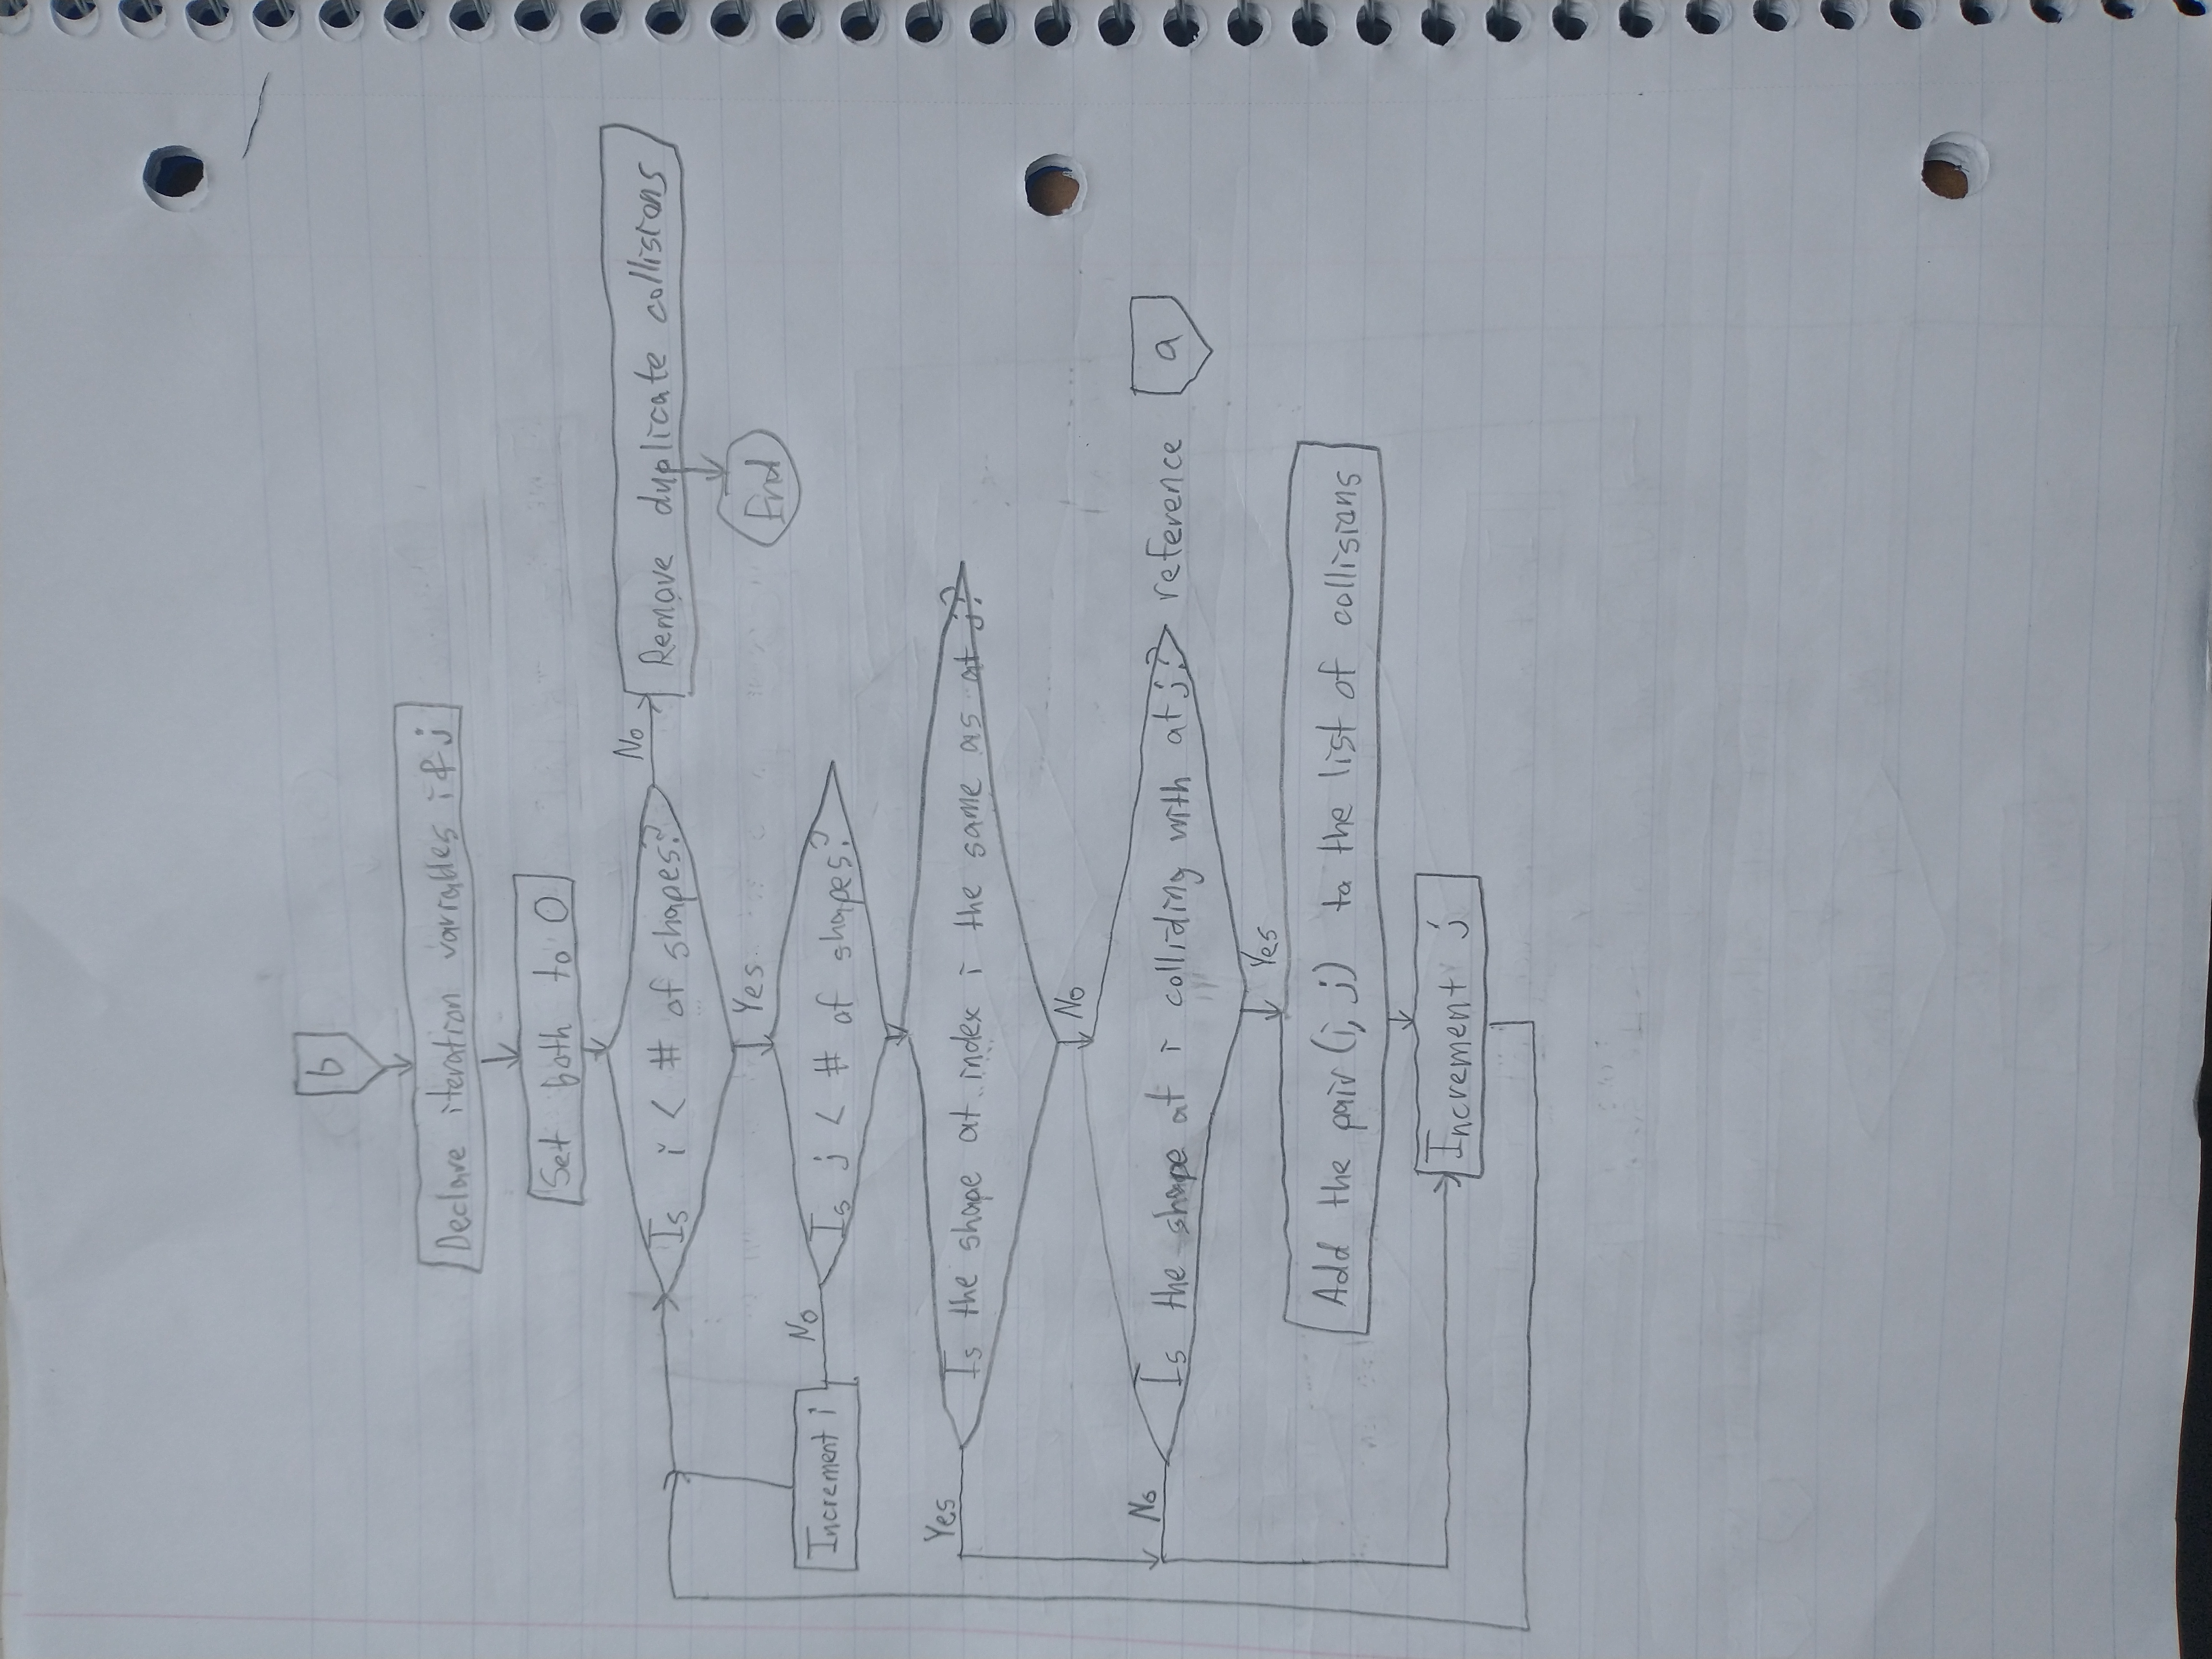 b
Declare iteration variables i & j
Set both to 0
Is i < # of shapes?
No
Remove duplicate collisions
End
Yes
Is j < # of shapes?
No
Increment i
Is the shape at index i the same as at j?
Yes
No
Is the shape at i colliding with at j?
reference
a
No
Yes
Add the pair (i, j) to the list of collisions
Increment j